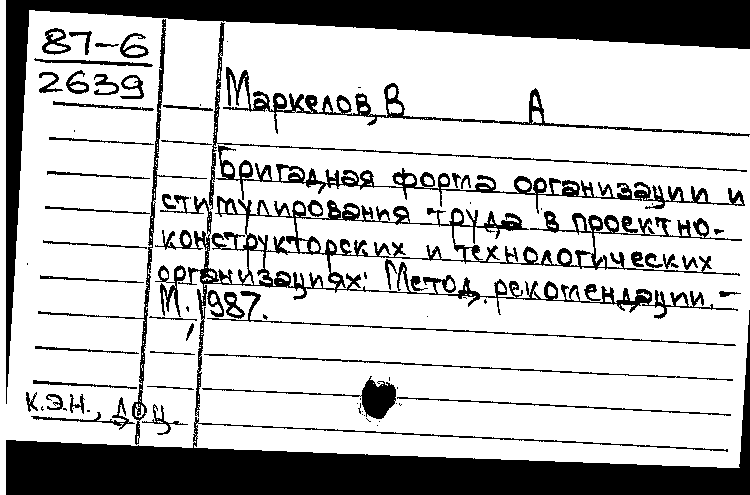 87-6
2639
Маркелов, В А
Бригадная форма организации и
стимулирования труда в проектно-
конструкторских и технологических
организациях: Метод. рекомендации. -
М., 1987.
к.э.н., доц.